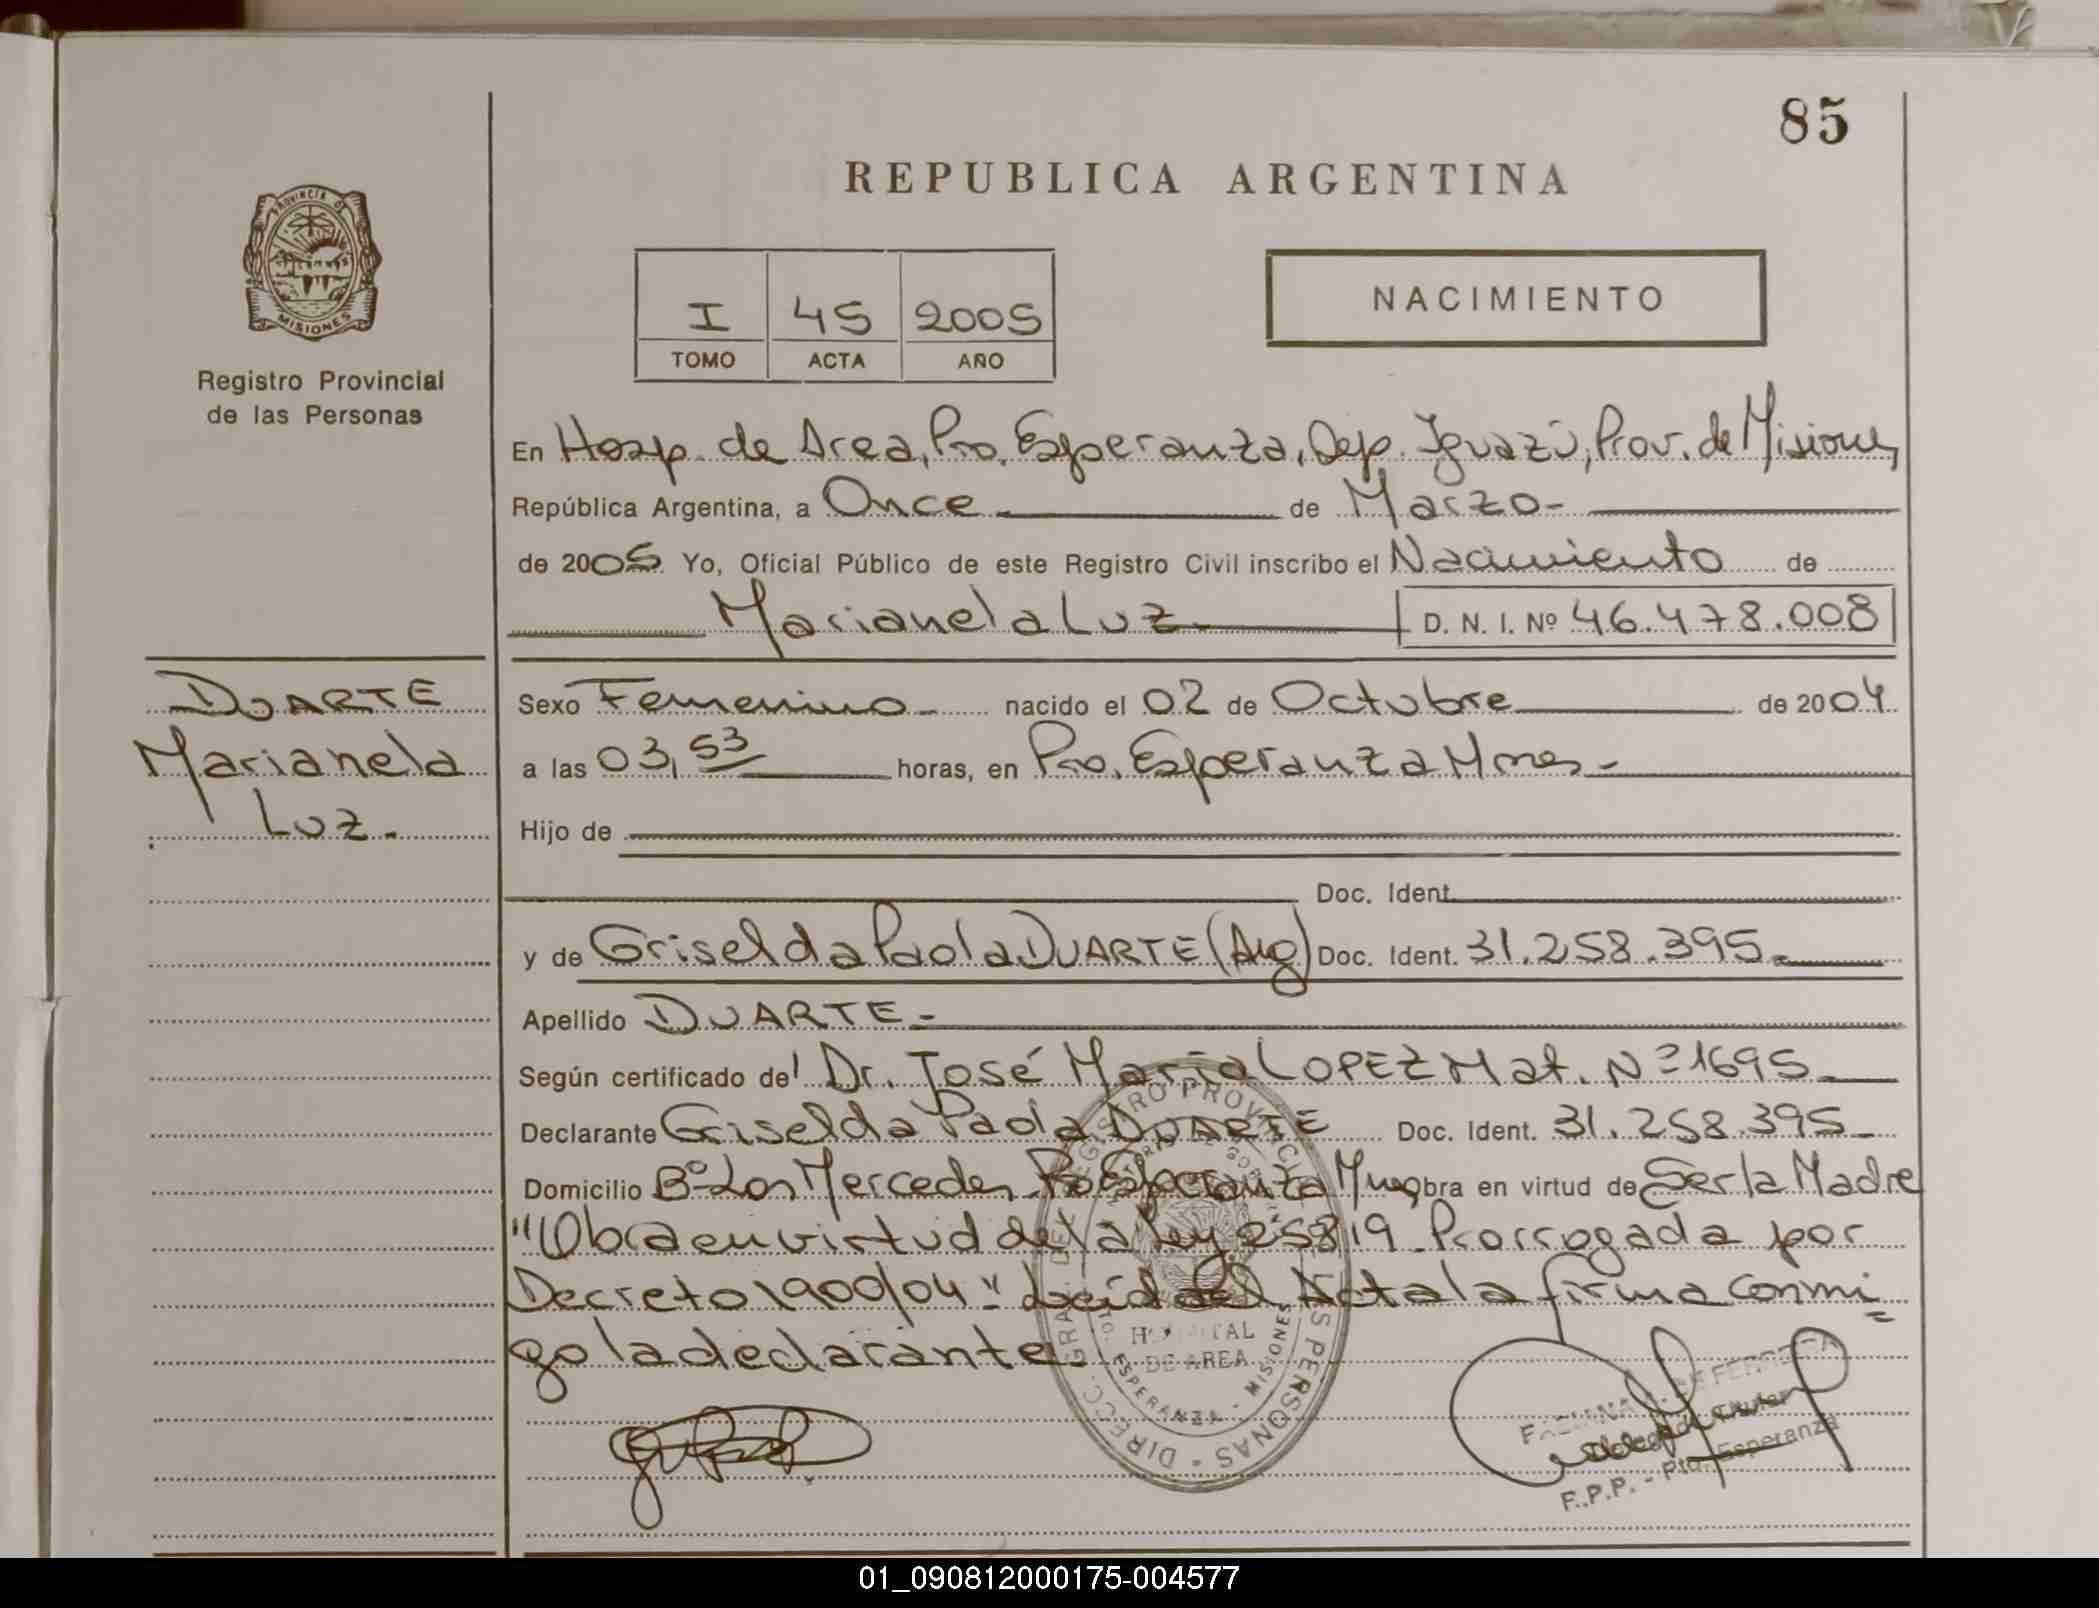 85
REPUBLICA ARGENTINA
PROVINCIA DE
MISIONES
Registro Provincial
de las Personas
I 45 2005
TOMO ACTA AÑO
NACIMIENTO
En Hosp. de Area, Pto. Esperanza, Dep. Iguazú, Prov. de Misiones
República Argentina, a Once de Marzo-
de 2005 Yo, Oficial Público de este Registro Civil inscribo el Nacimiento de
Marianela Luz D. N. I. Nº 46.478.008
DUARTE
Marianela
Luz.-
Sexo Femenino nacido el 02 de Octubre de 2004
a las 03,53 horas, en Pto. Esperanza Mnes-
Hijo de
Doc. Ident.
y de Griselda Paola DUARTE (Arg) Doc. Ident. 31.258.395.
Apellido DUARTE-
Según certificado del Dr. José María LOPEZ Mat. Nº 1695
Declarante Griselda Paola DUARTE Doc. Ident. 31.258.395
Domicilio Bº Las Mercedes Pto Esperanza Mnes, obra en virtud de Ser la Madre
"Obra en virtud de la ley 25819 Prorrogada por
Decreto 1900/04" Leída el Acta la firma conmi=
go la declarante.
DIRECC. GRAL. DEL REGISTRO PROVINCIAL DE LAS PERSONAS
HOSPITAL
DE AREA
PTO. ESPERANZA - MISIONES
DE FERREYRA
Delegada Titular
F.P.P. - Pto. Esperanza
01_090812000175-004577